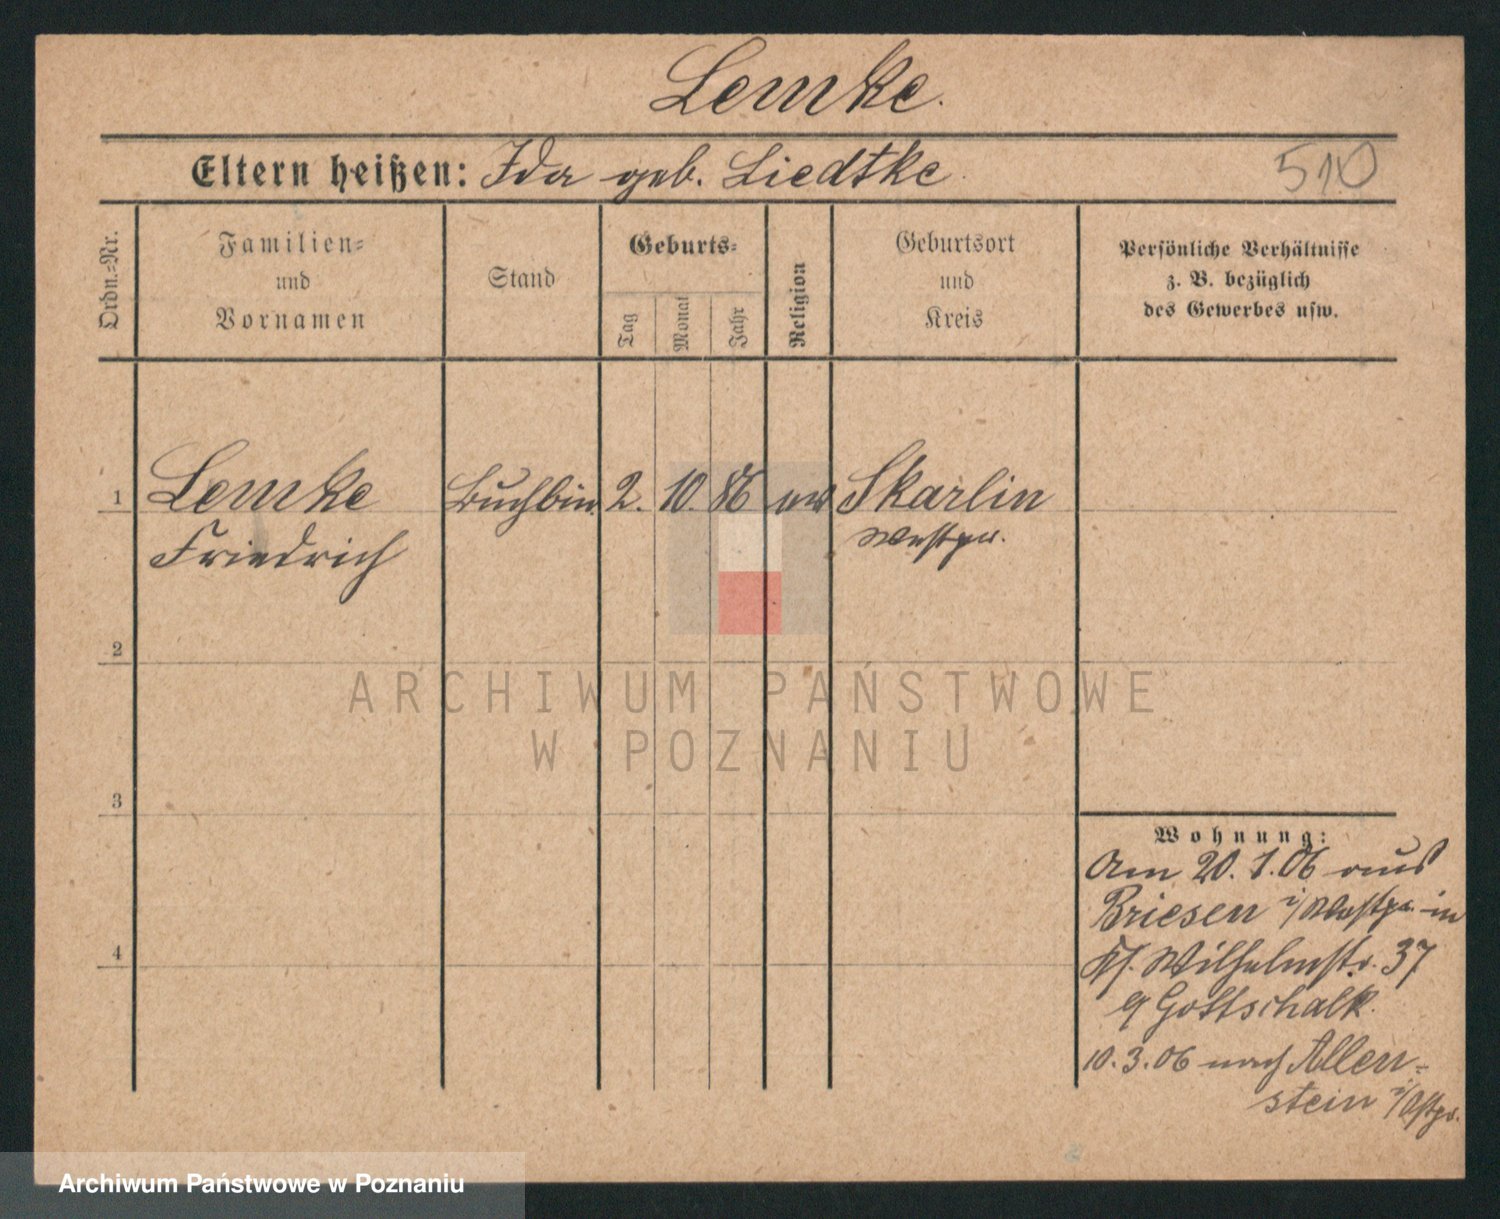 Lemke.
Eltern heißen: Ida geb. Liedtke
510
Ordn.=Nr.
Familien=
und
Vornamen
Stand
Geburts=
Tag
Monat
Jahr
Religion
Geburtsort
und
Kreis
Persönliche Verhältnisse
z. B. bezüglich
des Gewerbes usw.
1 Lemke Buchbin. 2. 10. 86 ev Skarlin
Friedrich Westpr.
2
ARCHIWUM PAŃSTWOWE
W POZNANIU
3
4
Wohnung:
Am 20. 1. 06 aus
Briesen i/Westpr. in
Wilhelmstr. 37
Gottschalk.
10. 3. 06 nach Allen=
stein i/Ostpr.
Archiwum Państwowe w Poznaniu